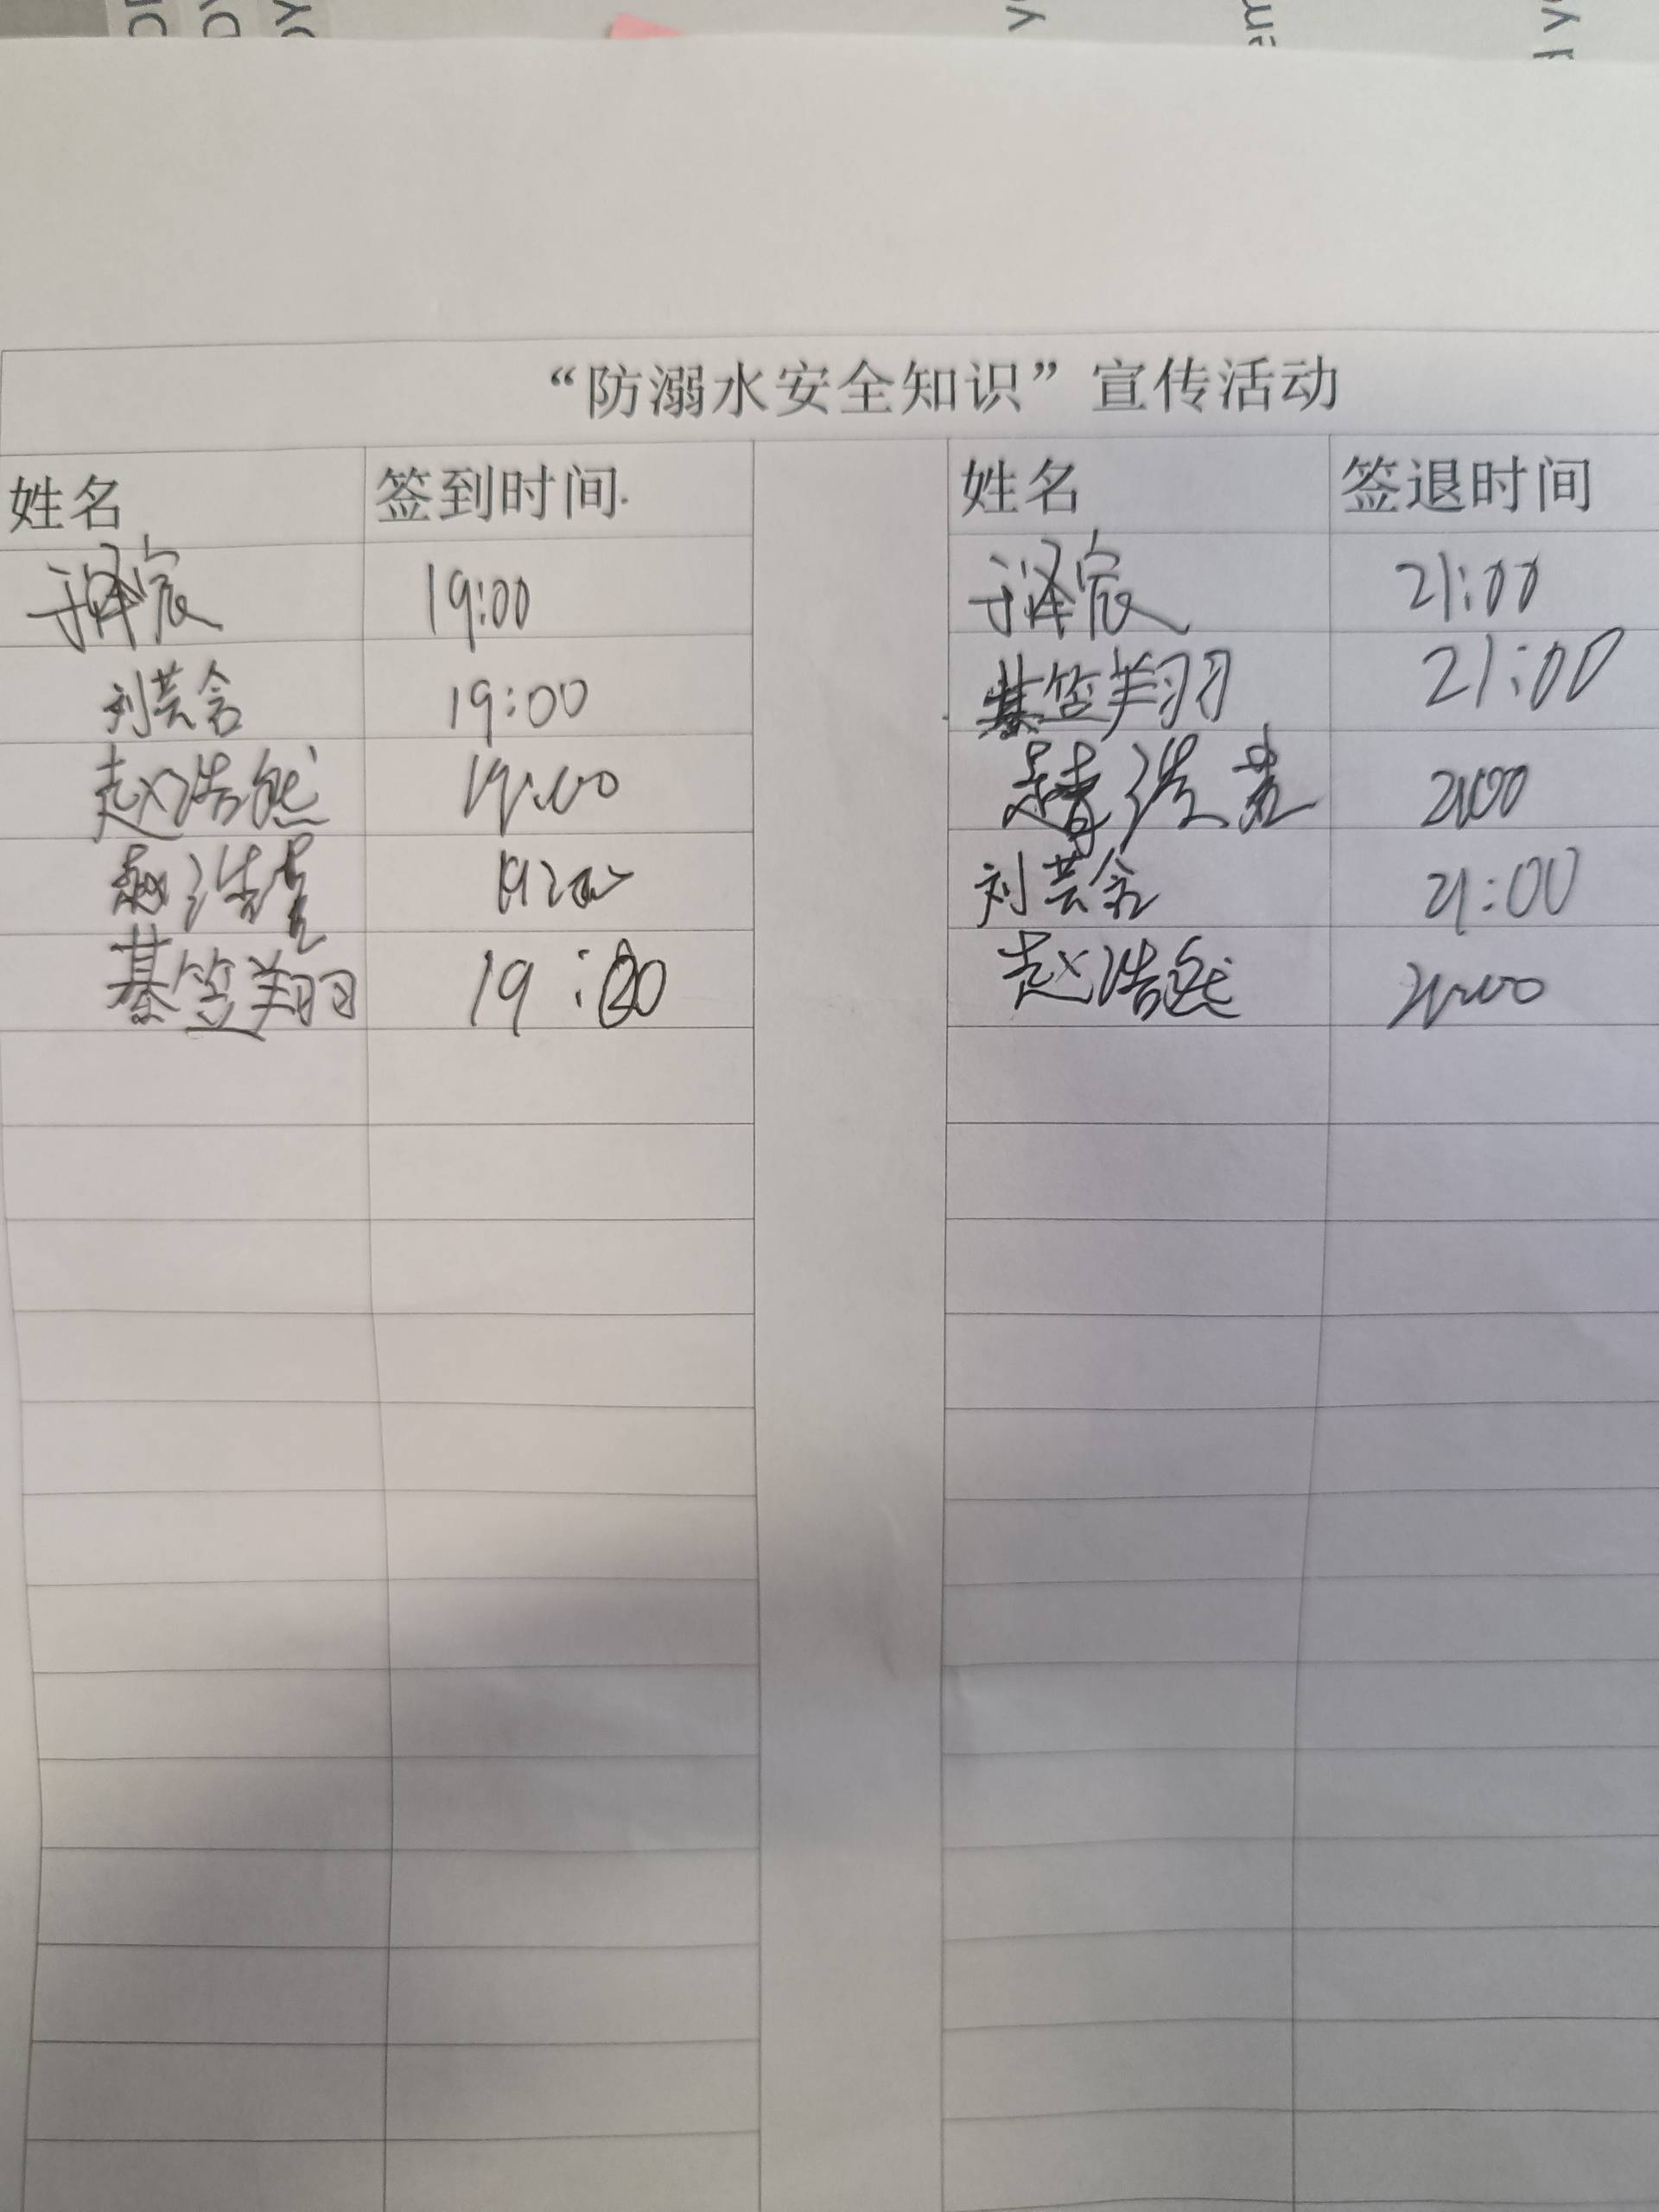 “防溺水安全知识”宣传活动
姓名 签到时间 姓名 签退时间
于泽宸 19:00 于泽宸 21:00
刘芸含 19:00 綦笠翔 21:00
赵浩然 19:00 浩 2100
浩 刘芸含 21:00
綦笠翔 19:00 赵浩然 21:00